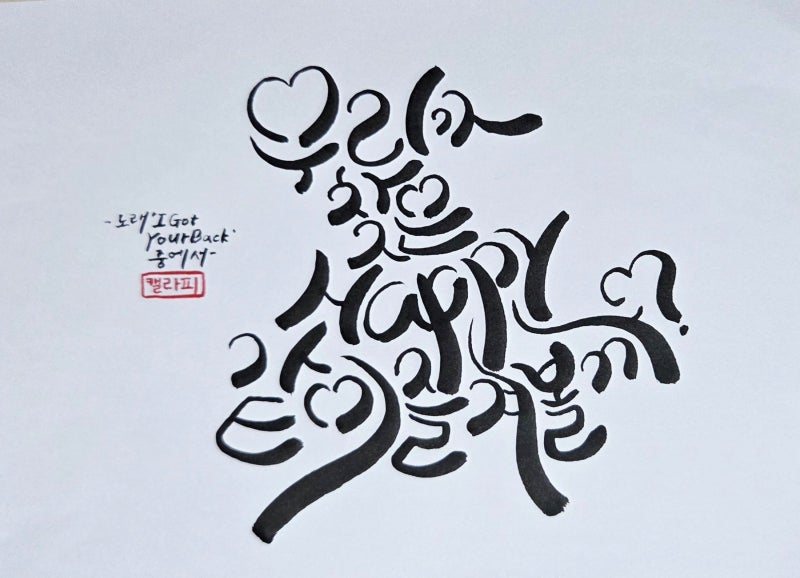 우리가
작은
Happy
같이 즐겨볼까?
- 노래 'I Got
Your Back'
중에서 -
캘라피